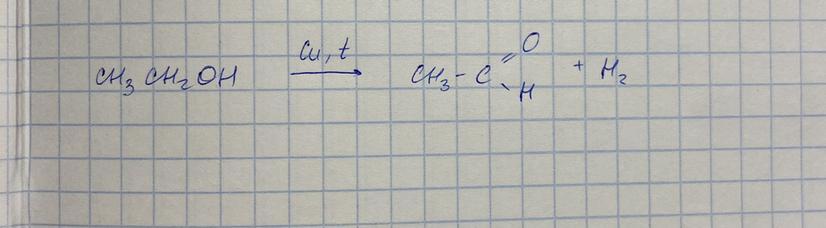 CH₃CH₂OH —Cu, t→ CH₃-C(=O)-H + H₂